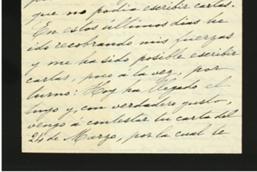 que no podía escribir cartas.
En estos últimos días he
ido recobrando mis fuerzas
y me ha sido posible escribir
cartas, poco á la vez, por
turno: Hoy ha llegado el
tuyo y, con verdadero gusto,
vengo á contestar tu carta del
24 de Marzo, por la cual te